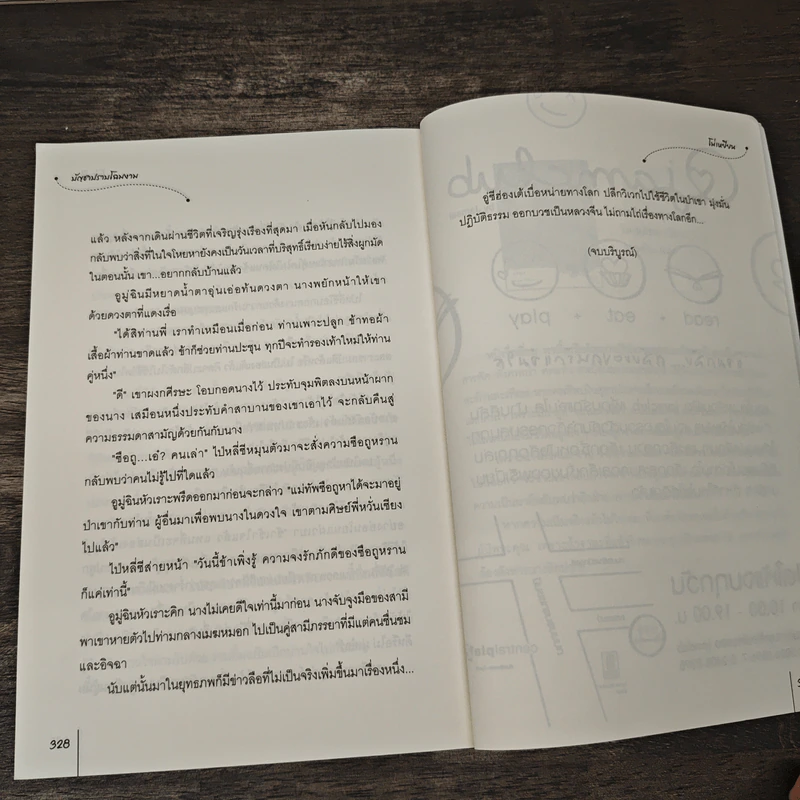 มัญชาปรามโฉมงาม
แล้ว หลังจากเดินผ่านชีวิตที่เจริญรุ่งเรืองที่สุดมา เมื่อหันกลับไปมอง
กลับพบว่าสิ่งที่ในใจโหยหายังคงเป็นวันเวลาที่บริสุทธิ์เรียบง่ายไร้สิ่งผูกมัด
ในตอนนั้น เขา...อยากกลับบ้านแล้ว
อูมู่ฉินมีหยาดน้ำตาอุ่นเอ่อท้นดวงตา นางพยักหน้าให้เขา
ด้วยดวงตาที่แดงเรื่อ
"ได้สิท่านพี่ เราทำเหมือนเมื่อก่อน ท่านเพาะปลูก ข้าทอผ้า
เสื้อผ้าท่านขาดแล้ว ข้าก็ช่วยท่านปะชุน ทุกปีจะทำรองเท้าใหม่ให้ท่าน
คู่หนึ่ง"
"ดี" เขาผงกศีรษะ โอบกอดนางไว้ ประทับจุมพิตลงบนหน้าผาก
ของนาง เสมือนหนึ่งประทับคำสาบานของเขาเอาไว้ จะกลับคืนสู่
ความธรรมดาสามัญด้วยกันกับนาง
"ซือถู...เอ๋? คนเล่า" ไป๋หลี่ซีหมุนตัวมาจะสั่งความซือถูหราน
กลับพบว่าคนไม่รู้ไปที่ใดแล้ว
อูมู่ฉินหัวเราะพรืดออกมาก่อนจะกล่าว "แม่ทัพซือถูหาได้จะมาอยู่
ป่าเขากับท่าน ผู้อื่นมาเพื่อพบนางในดวงใจ เขาตามศิษย์พี่หวั่นเซียง
ไปแล้ว"
ไป๋หลี่ซีส่ายหน้า "วันนี้ข้าเพิ่งรู้ ความจงรักภักดีของซือถูหราน
ก็แค่เท่านี้"
อูมู่ฉินหัวเราะคิก นางไม่เคยดีใจเท่านี้มาก่อน นางจับจูงมือของสามี
พาเขาหายตัวไปท่ามกลางเมฆหมอก ไปเป็นคู่สามีภรรยาที่มีแต่คนชื่นชม
และอิจฉา
นับแต่นั้นมาในยุทธภพก็มีข่าวลือที่ไม่เป็นจริงเพิ่มขึ้นมาเรื่องหนึ่ง...
328
โม่เหยียน
อู่ซีฮ่องเต้เบื่อหน่ายทางโลก ปลีกวิเวกไปใช้ชีวิตในป่าเขา มุ่งมั่น
ปฏิบัติธรรม ออกบวชเป็นหลวงจีน ไม่ถามไถ่เรื่องทางโลกอีก...
(จบบริบูรณ์)